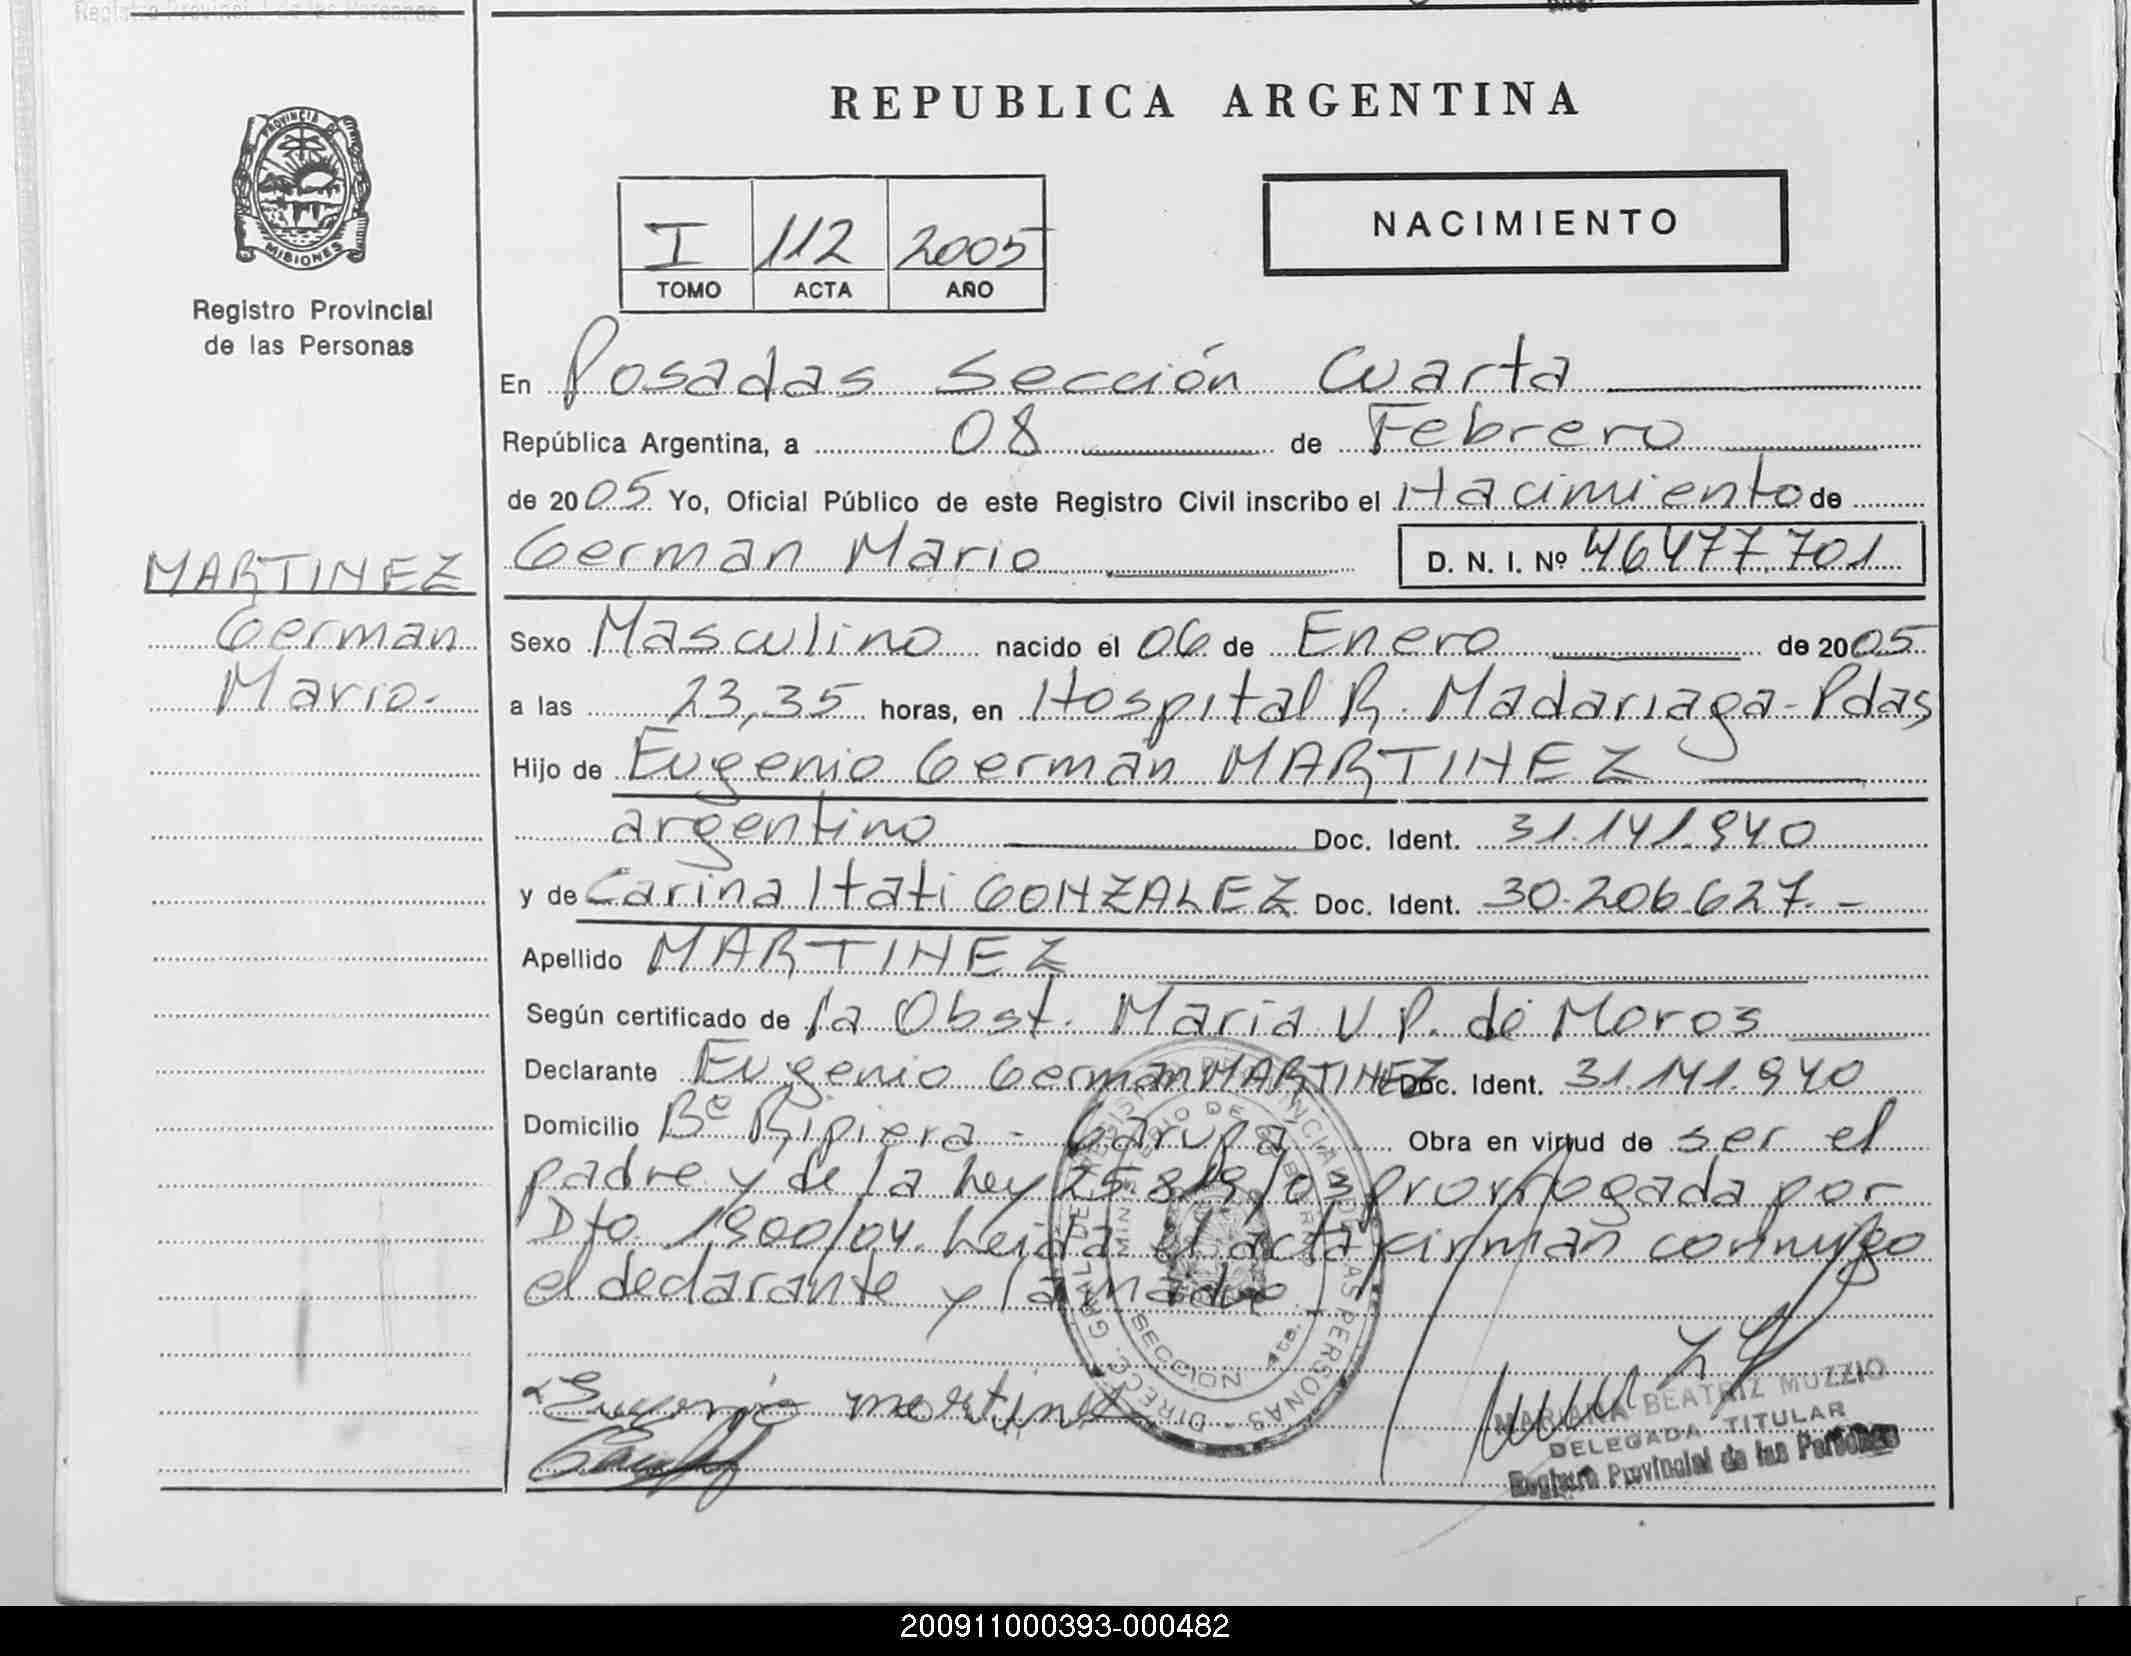 Registro Provincial de las Personas
REPUBLICA ARGENTINA
PROVINCIA DE
MISIONES
Registro Provincial
de las Personas
I 112 2005
TOMO ACTA AÑO
NACIMIENTO
En Posadas Sección Cuarta
República Argentina, a 08 de Febrero
de 2005 Yo, Oficial Público de este Registro Civil inscribo el Nacimiento de
German Mario D. N. I. Nº 46477.701
MARTINEZ
German
Mario.
Sexo Masculino nacido el 06 de Enero de 2005
a las 23,35 horas, en Hospital R. Madariaga - Pdas
Hijo de Eugenio Germán MARTINEZ
argentino Doc. Ident. 31.141.940
y de Carina Itati GONZALEZ Doc. Ident. 30.206.627.-
Apellido MARTINEZ
Según certificado de la Obst. Maria V. P. de Moros
Declarante Eugenio Germán MARTINEZ Doc. Ident. 31.141.940
Domicilio Bº Ripiera - Garupa Obra en virtud de ser el
padre y de la Ley 25.819/03 prorrogada por
Dto 1900/04. Leida el acta firman conmigo
el declarante y la madre
Eugenio martinez
MARIANA BEATRIZ MUZZIO
DELEGADA TITULAR
Registro Provincial de las Personas
200911000393-000482